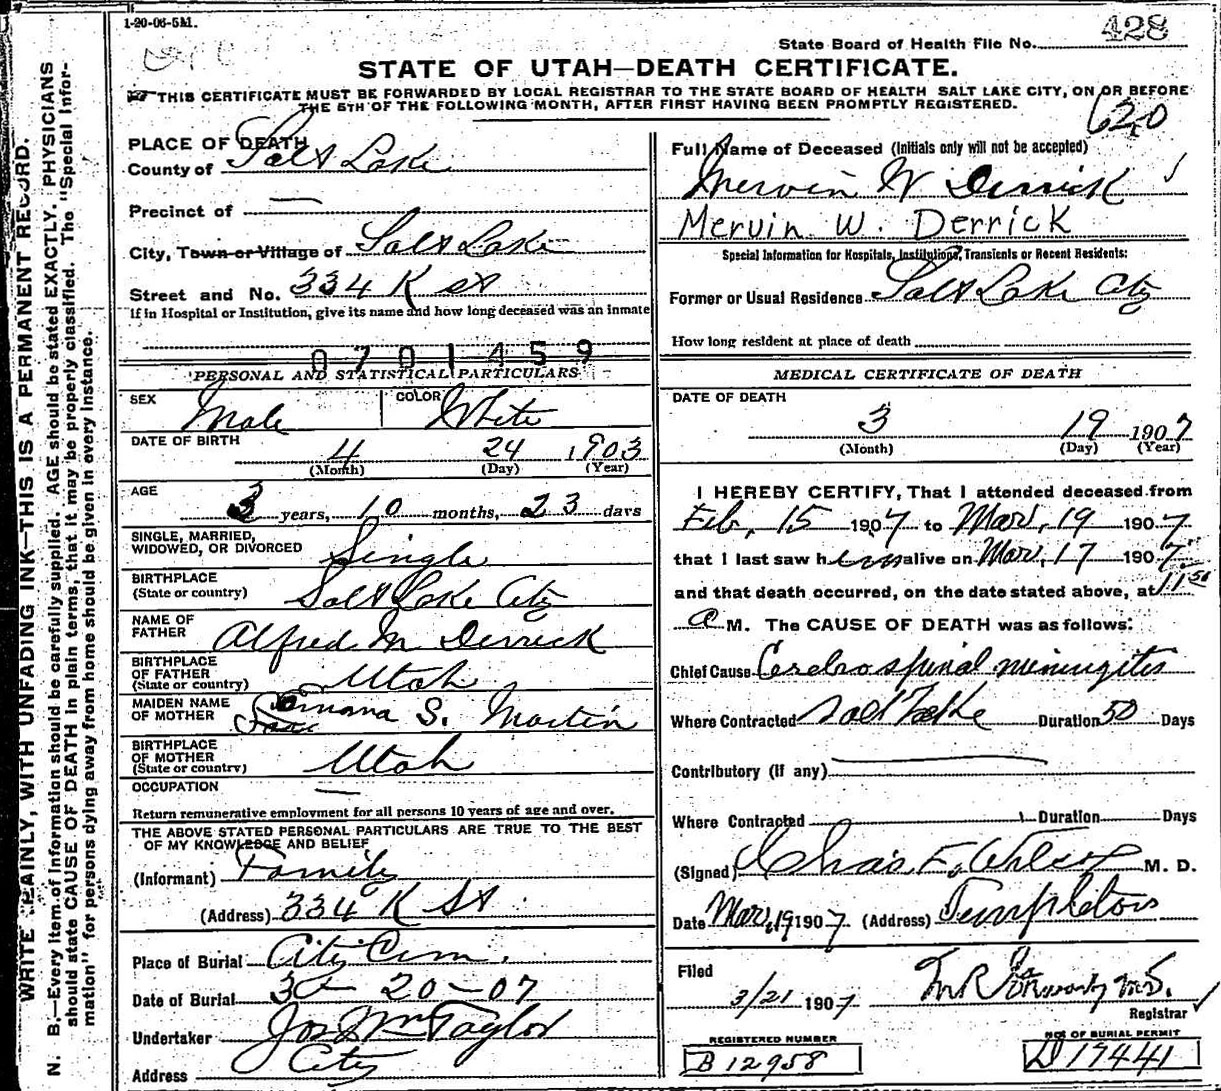 1-20-06-5M.
State Board of Health File No. 428
STATE OF UTAH—DEATH CERTIFICATE.
THIS CERTIFICATE MUST BE FORWARDED BY LOCAL REGISTRAR TO THE STATE BOARD OF HEALTH SALT LAKE CITY, ON OR BEFORE
THE 5TH OF THE FOLLOWING MONTH, AFTER FIRST HAVING BEEN PROMPTLY REGISTERED.
620
WRITE PLAINLY, WITH UNFADING INK—THIS IS A PERMANENT RECORD.
N. B.—Every item of information should be carefully supplied. AGE should be stated EXACTLY. PHYSICIANS
should state CAUSE OF DEATH in plain terms, that it may be properly classified. The "Special Infor-
mation" for persons dying away from home should be given in every instance.
PLACE OF DEATH
County of Salt Lake
Precinct of —
City, Town or Village of Salt Lake
Street and No. 334 K St
If in Hospital or Institution, give its name and how long deceased was an inmate
0701459
PERSONAL AND STATISTICAL PARTICULARS
SEX Male COLOR White
DATE OF BIRTH 4 24 1903
(Month) (Day) (Year)
AGE 3 years, 10 months, 23 days
SINGLE, MARRIED,
WIDOWED, OR DIVORCED Single
BIRTHPLACE
(State or country) Salt Lake City
NAME OF
FATHER Alfred M Derrick
BIRTHPLACE
OF FATHER
(State or country) Utah
MAIDEN NAME
OF MOTHER S. Martin
BIRTHPLACE
OF MOTHER
(State or country) Utah
OCCUPATION —
Return remunerative employment for all persons 10 years of age and over.
THE ABOVE STATED PERSONAL PARTICULARS ARE TRUE TO THE BEST
OF MY KNOWLEDGE AND BELIEF
(Informant) Family
(Address) 334 K St
Place of Burial City Cem.
Date of Burial 3 — 20 — 07
Undertaker Jos Wm Taylor
Address City
Full Name of Deceased (Initials only will not be accepted)
Mervin W Derrick
Mervin W. Derrick
Special Information for Hospitals, Institutions, Transients or Recent Residents:
Former or Usual Residence Salt Lake City
How long resident at place of death
MEDICAL CERTIFICATE OF DEATH
DATE OF DEATH
3 19 1907
(Month) (Day) (Year)
I HEREBY CERTIFY, That I attended deceased from
Feb, 15 1907 to Mar, 19 1907
that I last saw him alive on Mar, 17 1907
and that death occurred, on the date stated above, at 11 50
a M. The CAUSE OF DEATH was as follows:
Chief Cause Cerebro spinal meningitis
Where Contracted Salt Lake Duration 50 Days
Contributory (if any) —
Where Contracted Duration Days
(Signed) Chas. F. Wilcox M. D.
Date Mar, 19 1907 (Address) Templeton
Filed
3/21 1907 M.D.
Registrar
REGISTERED NUMBER
B 12958
NO. OF BURIAL PERMIT
D 17441